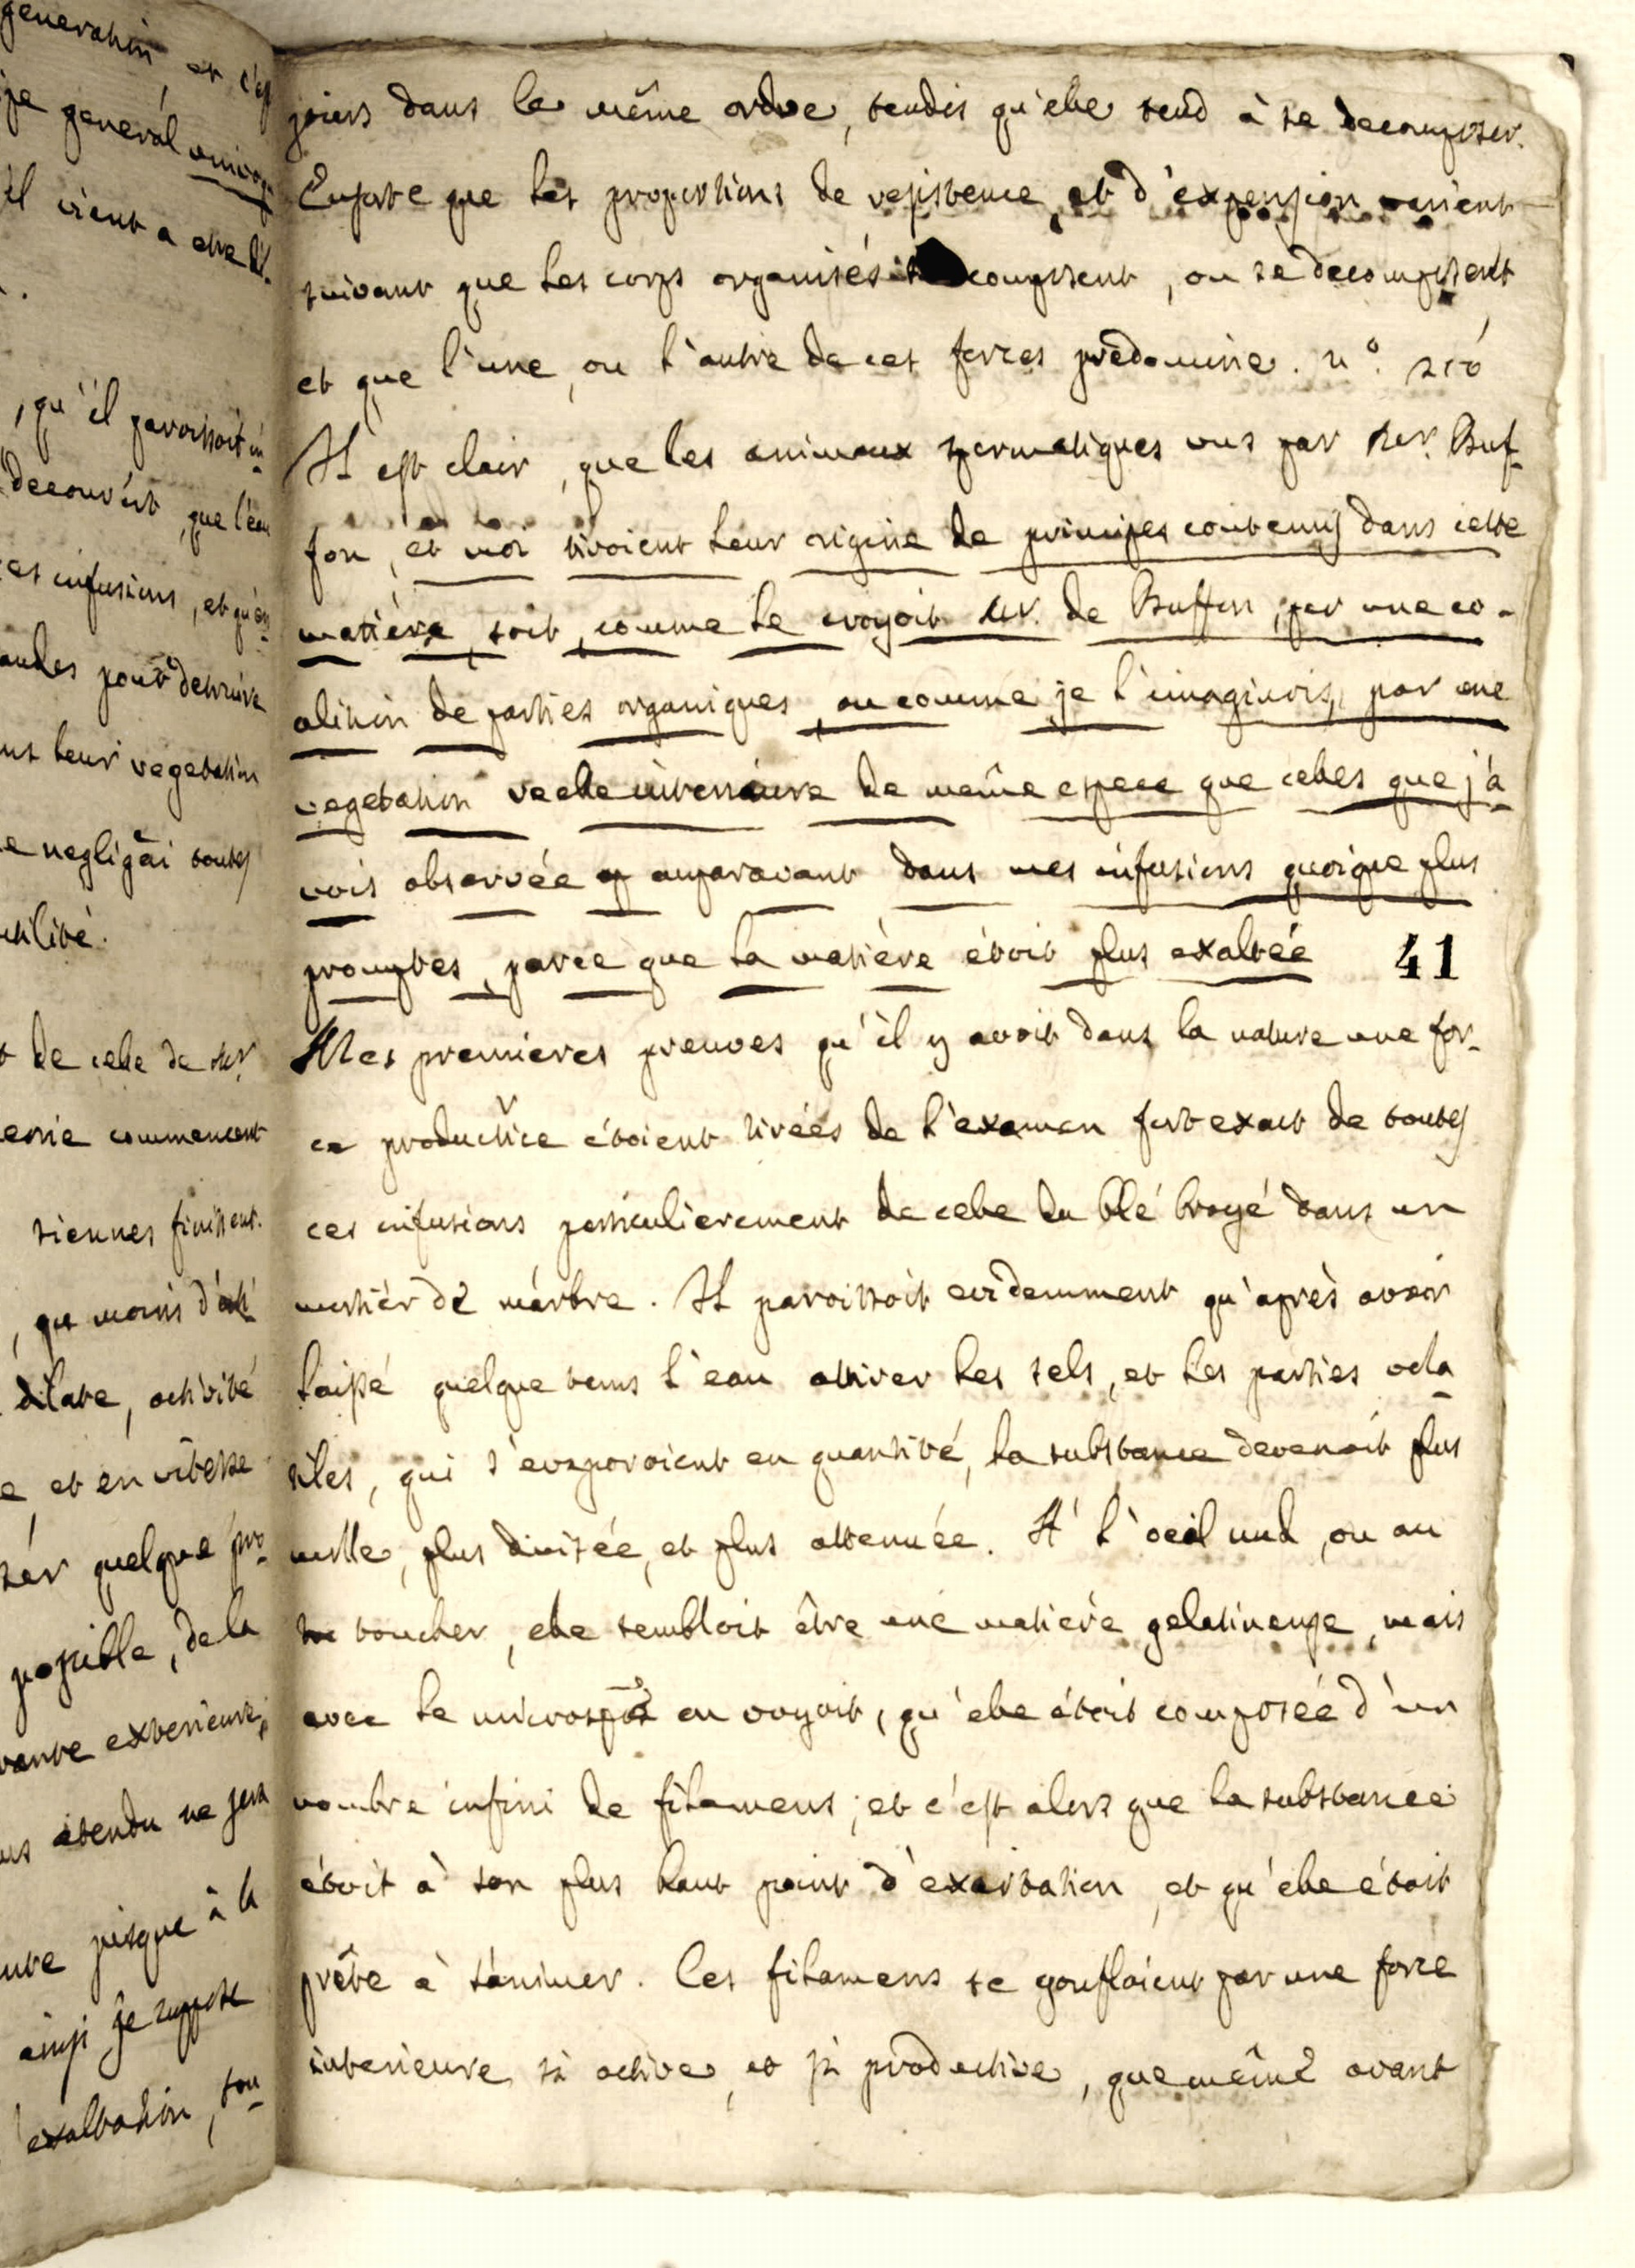 generation, et c'est
général
il vient a etre
, qu'il paroissoit in-
decouvert, que l'eau
ces infusions, et qu'en-
pour detruire
leur vegetation
negligai toutes
utilité.
de celle de Mr.
commencent
siennes finissent.
, que moins d'
dilate, activité
et en vitesse
quelque pro-
possible, de la
exterieure,
etendu ne sera
jusque à la
ainsi je suppose
exaltation, tou-
jours dans le même ordre, tandis qu'elle tend à se decomposer.
Ensorte que les proportions de resistence, et d'expension varient
suivant que les corps organisés se composent, ou se decomposent
et que l'une, ou l'autre de ces forces prèdomine. n.°
Il est clair, que les animaux spermatiques vus par Mr. Buf-
fon, et moi tiroient leur origine de principes contenus dans cette
matière, soit, comme le croyoit Mr. de Buffon, par une co-
alition de parties organiques, ou comme je l'imaginois, par une
vegetation reelle interieure de même espece que celles que j'a-
vois observée auparavant dans mes infusions quoique plus
promptes, parce que la matière étoit plus exaltée 41
Mes premieres preuves qu'il y avoit dans la nature une for-
ce productrice étoient tirées de l'examen fort exact de toutes
ces infusions particulierement de celle du blé broyé dans un
mortièr de màrbre. Il paroissoit evidemment qu'après avoir
laissé quelque tems l'eau attirer les sels, et les parties vola-
tiles, qui s'evaporoient en quantité, la substance devenoit plus
molle, plus divisée, et plus attenuée. A' l'oeil nud, ou au
toucher, elle sembloit être une matière gelatineuse, mais
avec le microspe on voyoit, qu'elle étoit composée d'un
nombre infini de filamens; et c'est alors que la substance
étoit à son plus haut point d'exartation, et qu'elle étoit
prête à s'animer. Ces filamens se gonfloient par une force
interieure si active, et si productive, que même avant